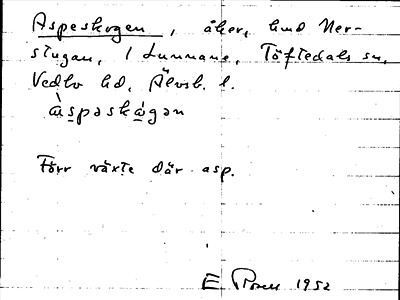 Aspeskogen, åker, hmd Ner-
stugan, 1 Lunnane, Töftedals sn,
Vedbo hd, Älvsb. l.
àspəskágən
Förr växte där asp.
E 1952